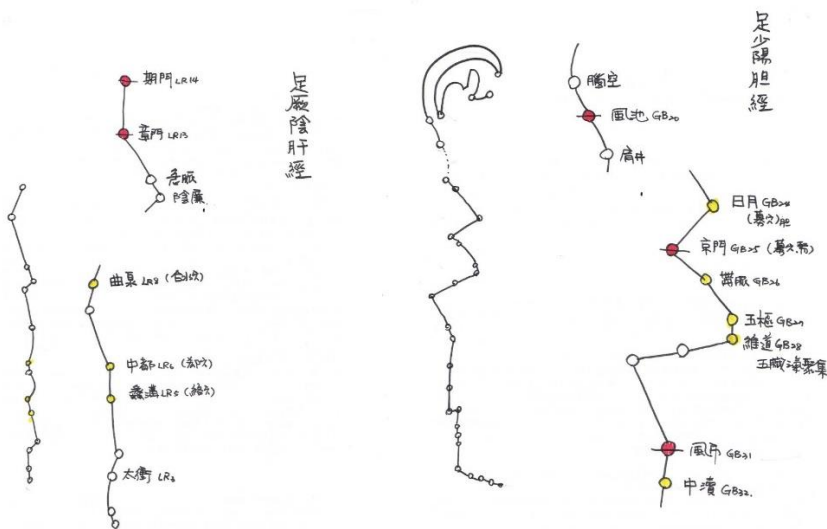 足厥陰肝經
期門 LR14
章門 LR13
急脈
陰廉
曲泉 LR8 (合水穴)
中都 LR6 (郄穴)
蠡溝 LR5 (絡穴)
太衝 LR3
足少陽胆經
腦空
風池 GB20
肩井
日月 GB24
(募穴)胆
京門 GB25 (募穴.腎)
帶脈 GB26
五樞 GB27
維道 GB28
風市 GB31
中瀆 GB32.